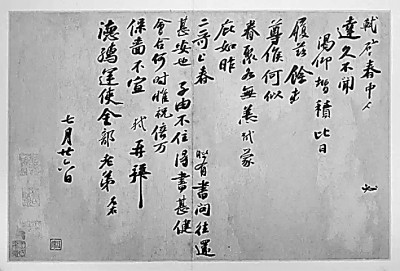 軾啓春中人 必
達久不聞
渴仰增積比日
履茲餘
尊候何似
眷聚各無恙軾蒙
庇如昨
二哥上春 時有書問往還
甚安也子由不住得書甚健
會合何時惟祝倍万
保嗇不宣 軾再拜
德孺運使金部老弟
七月廿六日